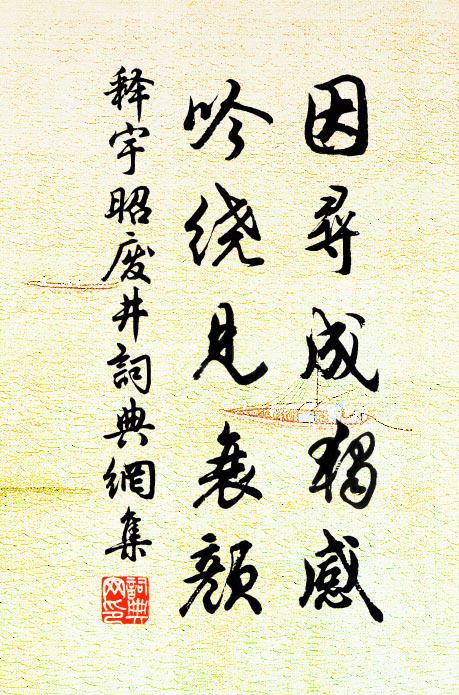 因寻成獨感
吟绕見衰顔
释宇昭废井詞典網集
詞典
网印